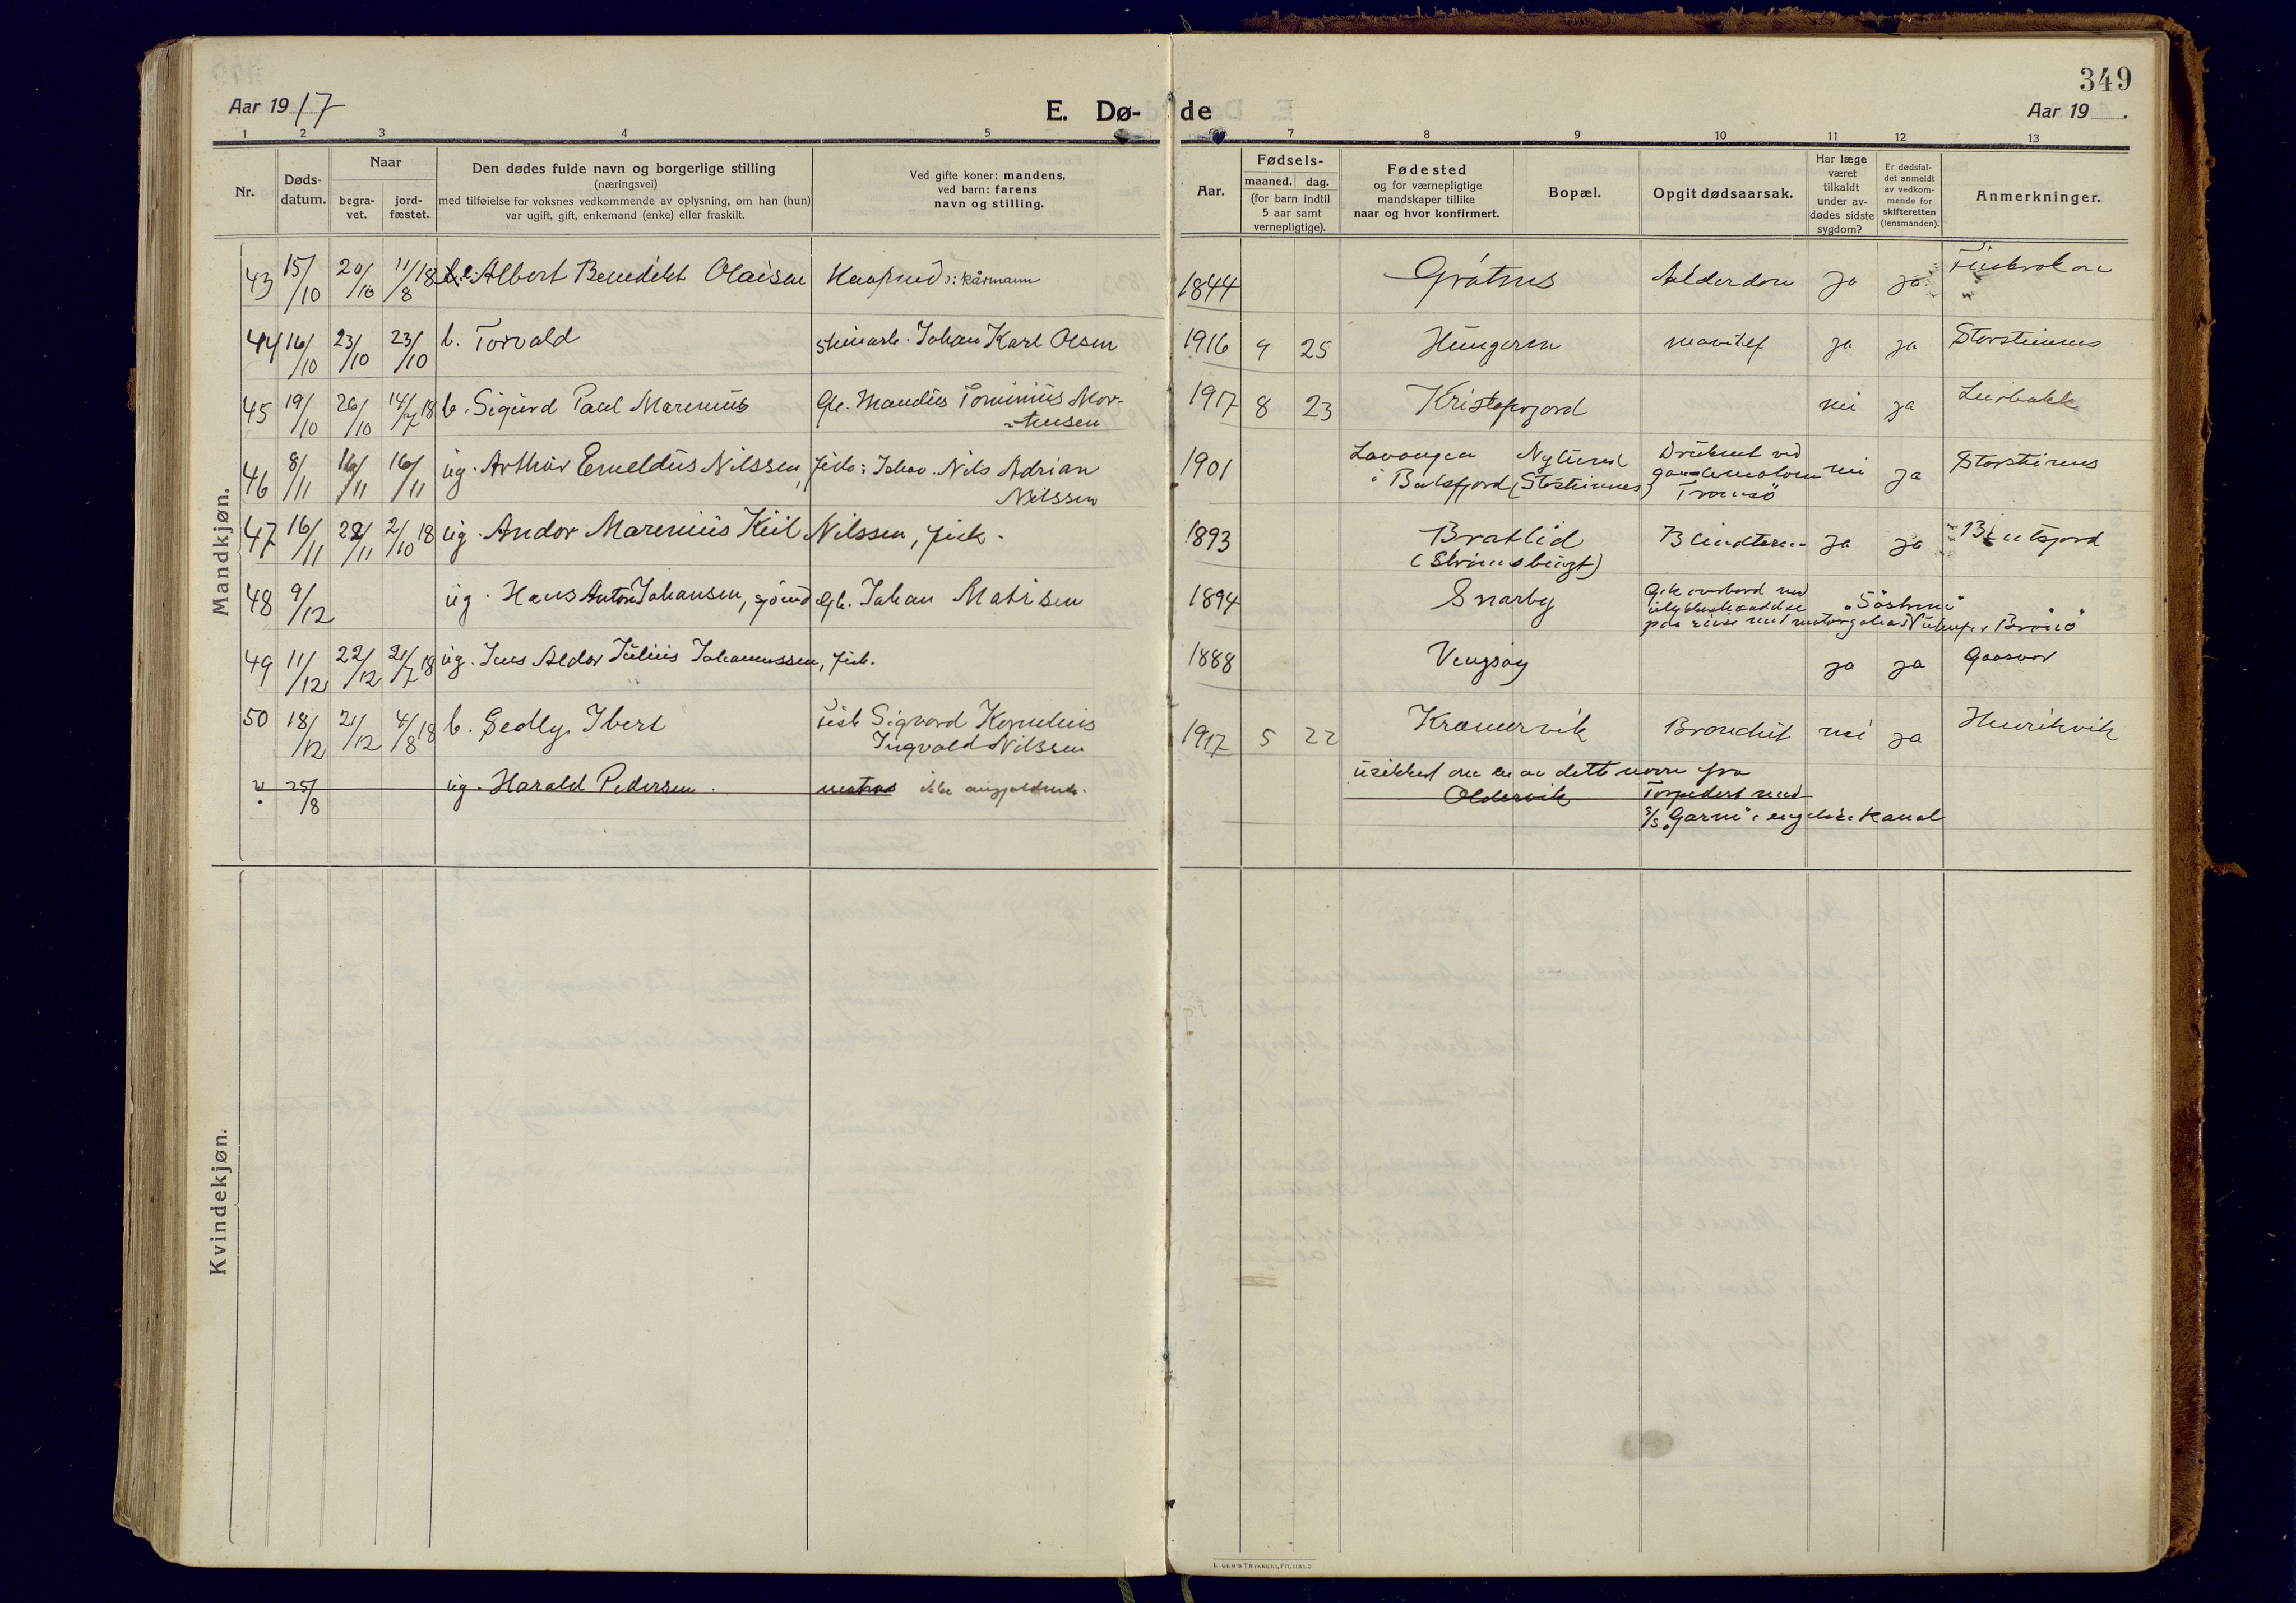 349
Aar 1917
E. Dø-
de
Aar 19
1 2 3 4 5 7 8 9 10 11 12 13
Nr.
Døds-
datum.
Naar
begra-
vet.
jord-
fæstet.
Den dødes fulde navn og borgerlige stilling
(næringsvei)
med tilføielse for voksnes vedkommende av oplysning, om han (hun)
var ugift, gift, enkemand (enke) eller fraskilt.
Ved gifte koner: mandens,
ved barn: farens
navn og stilling.
Aar.
Fødsels-
maaned. dag.
(for barn indtil
5 aar samt
vernepligtige).
Fødested
og for værnepligtige
mandskaper tillike
naar og hvor konfirmert.
Bopæl.
Opgit dødsaarsak.
Har læge
været
tilkaldt
under av-
dødes sidste
sygdom?
Er dødsfal-
det anmeldt
av vedkom-
mende for
skifteretten
(lensmanden).
Anmerkninger.
Mandkjøn.
43 15/10 20/10 11/8 18 Albert Benedikt Olaisen kårmann 1844 Grøtnes Alderdom ja ja
44 16/10 23/10 23/10 b. Torvald Johan Karl Olsen 1916 9 25 Hungeren ja ja Storsteinnes
45 19/10 26/10 14/7 18 b. Sigurd Paul Marenius Gb. Mandius Tominius Mor-
tensen 1917 8 23 Kristoferjord nei ja Leirbakk
46 8/11 16/11 16/11 ug. Arthur Emeldus Nilssen, fisk: Nils Adrian
Nilssen 1901 Lavangen
i Balsfjord Nylund
(Storsteinnes) Druknet ved
Tromsö nei ja Storsteinnes
47 16/11 29/11 2/10 18 ug. Andor Marenius Kiil Nilssen, fisk. 1893 Bratlid
(Strømsbugt) Blindtarm ja ja
48 9/12 ug. Hans Anton Johansen, sjömd. Gb. Johan Matisen 1894 Snarby Gik overbord ved
ulykkeshændelse
paa reise med
49 11/12 22/12 21/7 18 ug. Jens Aldor Julius Johannessen, fisk. 1888 Vengsøy ja ja Gaasvær
50 18/12 21/12 4/8 18 b. Sedly Ibert fisk Sigvard Kornelius
Ingvald Nilssen 1917 5 22 Kramervik Bronchit nei ja Henrikvik
25/8 ug. Harald Pedersen matros ikke angjeldende. usikkert om en av dette navn fra
Oldervik Torpedert med
s/s "Garm" i engelske Kanal
Kvindekjøn.